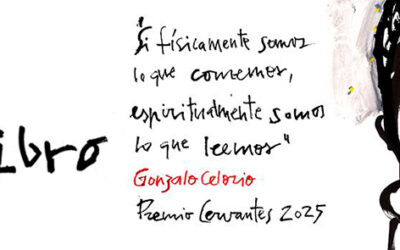 ibro
"Si físicamente somos
lo que comemos,
espiritualmente somos
lo que leemos"
Gonzalo Celorio
Premio Cervantes 2025